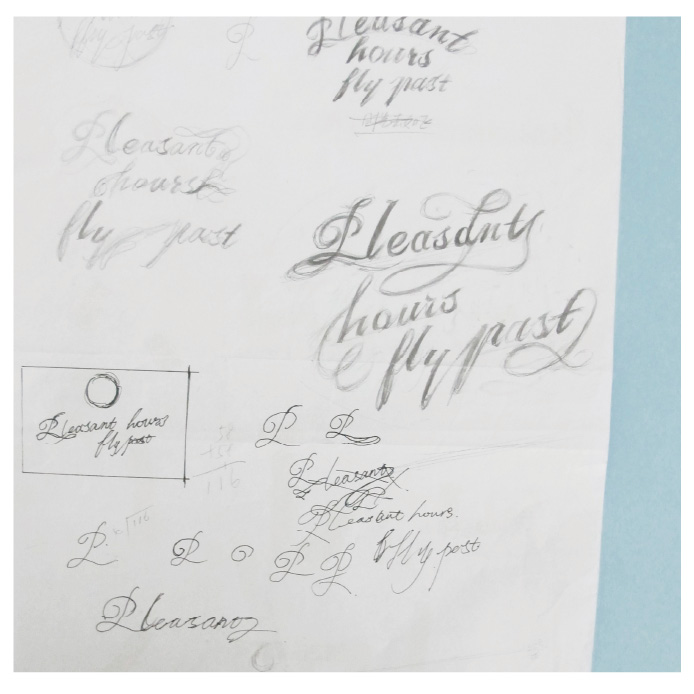 fly past
P
Pleasant
hours
fly past
Pleasant
hours
fly past
Pleasant
hours
fly past
Pleasant hours
fly past
58
+58
116
P P
Pleasant
P
Pleasant hours.
fly past
P. √116
P P P
Pleasant